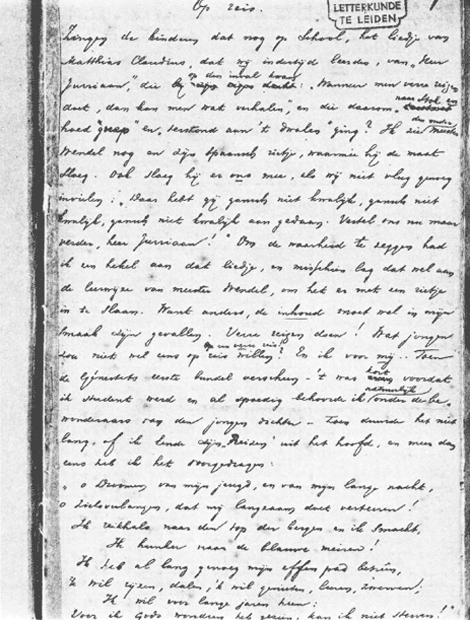 Op reis.
LETTERKUNDE
TE LEIDEN
Zingen de kinderen dat nog op School, het liedje van
Matthias Claudius, dat wij indertijd leerden, van "Heer
Jurriaan", die op den inval kwam: "Wanneer men verre reizen
doet, dan kan men wat verhalen", en die daarom naar stok en
hoed "greep" en, terstond aan 't dwalen "ging"? Ik zie meester
Wendel nog en zijn Spaansch rietje, waarmee hij de maat
sloeg. Ook sloeg hij er ons mee, als wij niet vlug genoeg
invielen: "Daar hebt gij gansch niet kwalijk, gansch niet
kwalijk, gansch niet kwalijk aan gedaan. Vertel ons nu maar
verder, heer Jurriaan!" Om de waarheid te zeggen had
ik een hekel aan dat liedje, en misschien lag dat wel aan
de leerwijze van meester Wendel, om het er met een rietje
in te slaan. Want anders, de inhoud moet wel in mijn
smaak zijn gevallen. Verre reizen doen! Wat jongen
zou niet wel eens op reis willen? En ik voor mij.. Toen
de Génestets eerste bundel verscheen – 't was kort voordat
ik student werd en al spoedig behoorde ik natuurlijk onder de be-
wonderaars van den jongen dichter – toen duurde het niet
lang, of ik kende zijn "Reizen" uit het hoofd, en meer dan
eens heb ik het voorgedragen:
"o Droomen van mijn jeugd, en van mijn lange nacht,
o Zielsverlangen, dat mij langzaam doet verteeren!
Ik reikhals naar den top der bergen en ik smacht,
Ik hunker naar de blauwe meiren!
Ik heb al lang genoeg mijn effen pad betreên,
'k wil rijzen, dalen, 'k wil genieten, leven, zwerven!
Ik wil voor lange jaren heen:
Voor ik Gods wondren heb gezien, kan ik niet sterven!"